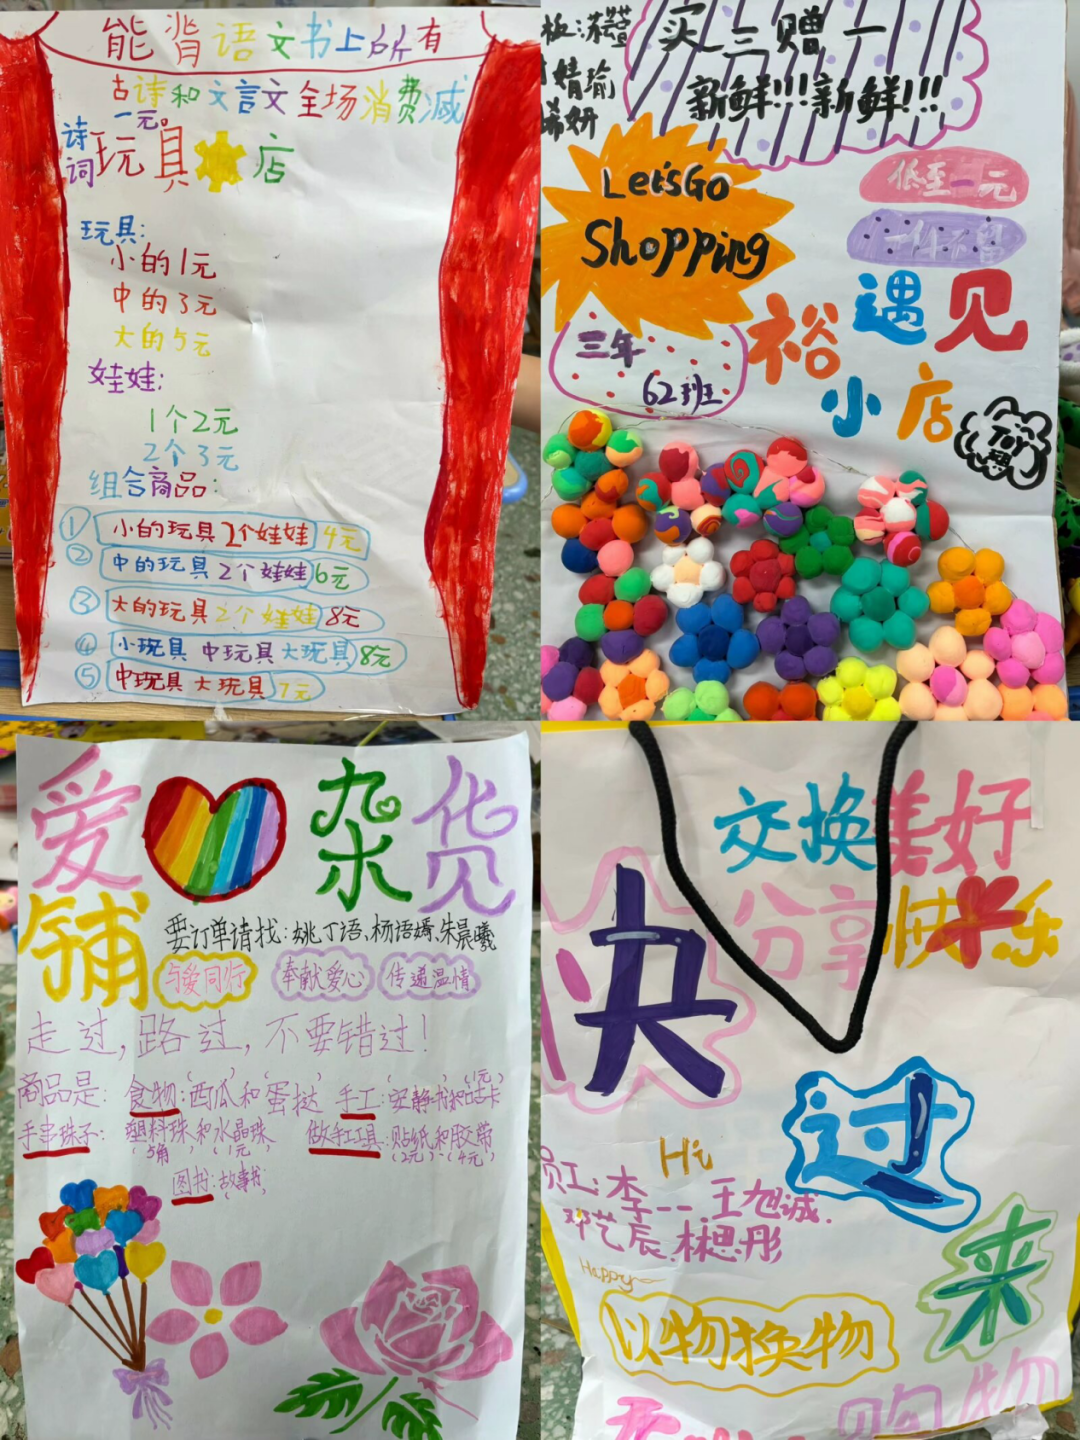 能背语文书上所有
古诗和文言文全场消费减
一元。
诗词玩具店
玩具:
小的1元
中的3元
大的5元
娃娃:
1个2元
2个3元
组合商品:
① 小的玩具2个娃娃4元
② 中的玩具2个娃娃6元
③ 大的玩具2个娃娃8元
④ 小玩具 中玩具 大玩具8元
⑤ 中玩具 大玩具7元
买三赠一
新鲜!!!新鲜!!!
婧瑜
妍
Let's Go
Shopping
低至一元
一件不留
三年
62班
裕遇见
小店
Toy
爱杂货
铺
要订单请找:姚丁语、杨语嫣、朱晨曦
与爱同行
奉献爱心
传递温情
走过,路过,不要错过!
商品是: 食物:西瓜和蛋挞 手工:安静书和咕卡
(1元)
手串珠子: 塑料珠和水晶珠 做手工工具:贴纸和胶带
(5角) (1元) (2元) (4元)
图书:故事书
交换美好
分享快乐
快
过
来
Hi
员工:李一一、王旭诚、
邓艺辰、林思彤
Happy
以物换物
购物